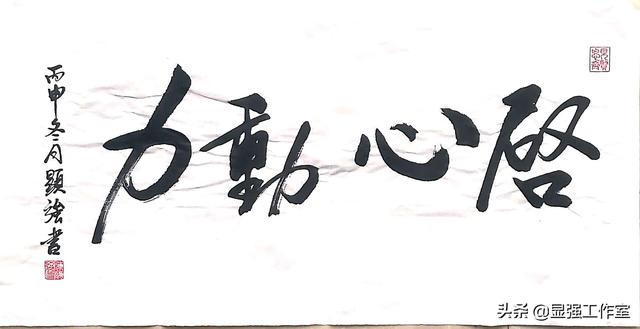 啓心動力
丙申冬月顯強書
头条 @显强工作室